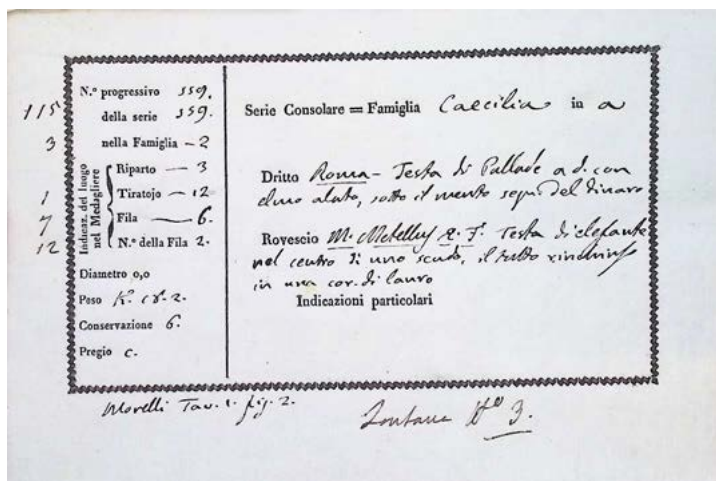 N.º progressivo 559.
115 della serie 559.
3 nella Famiglia — 2
Indicaz. del luogo
nel Medagliere
Riparto — 3
1 Tiratojo — 12
7 Fila — 6.
12 N.º della Fila 2.
Diametro 0,0
Peso K. 18. 2.
Conservazione 6.
Pregio c.
Serie Consolare = Famiglia Caecilia in a
Dritto Roma - Testa di Pallade a d. con
elmo alato, sotto il mento segn. del dinaro
Rovescio M. Metellus Q. F. Testa di elefante
nel centro di uno scudo, il tutto rinchiuso
in una cor. di lauro
Indicazioni particolari
Morelli Tav. 1. fig. 2.
Fontana Nº 3.